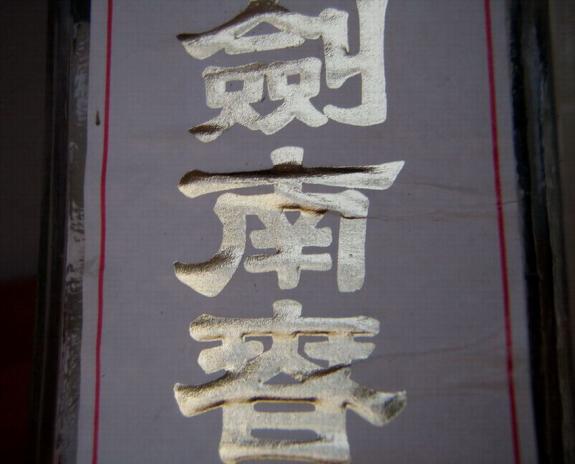 劍南春